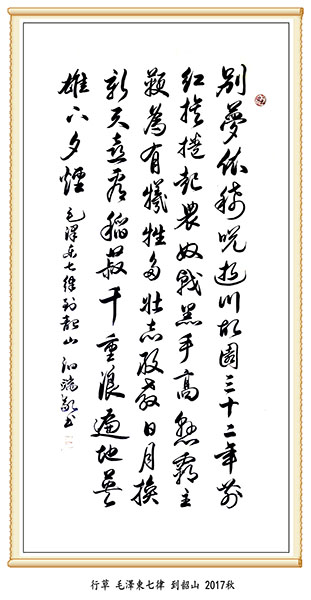 别夢依稀咒逝川故園三十二年前
红旗捲起農奴戟黑手高懸霸主
鞭為有犧牲多壮志敢教日月換
新天喜看稻菽千重浪遍地英
雄下夕煙 毛澤东七律到韶山 敬书
行草 毛澤東七律 到韶山 2017秋